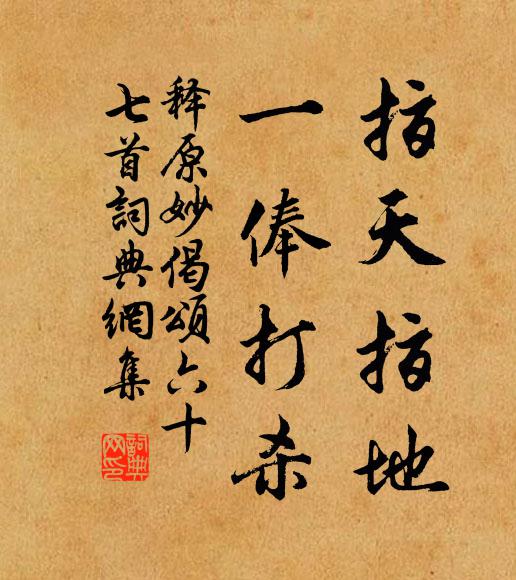 指天指地
一俸打杀
释原妙偈颂六十
七首詞典網集
詞典网印